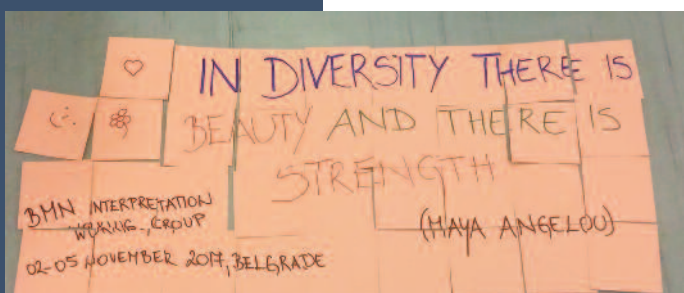 IN DIVERSITY THERE IS
BEAUTY AND THERE IS
STRENGTH
(MAYA ANGELOU)
BMN INTERPRETATION
WORKING GROUP
02-05 NOVEMBER 2017, BELGRADE